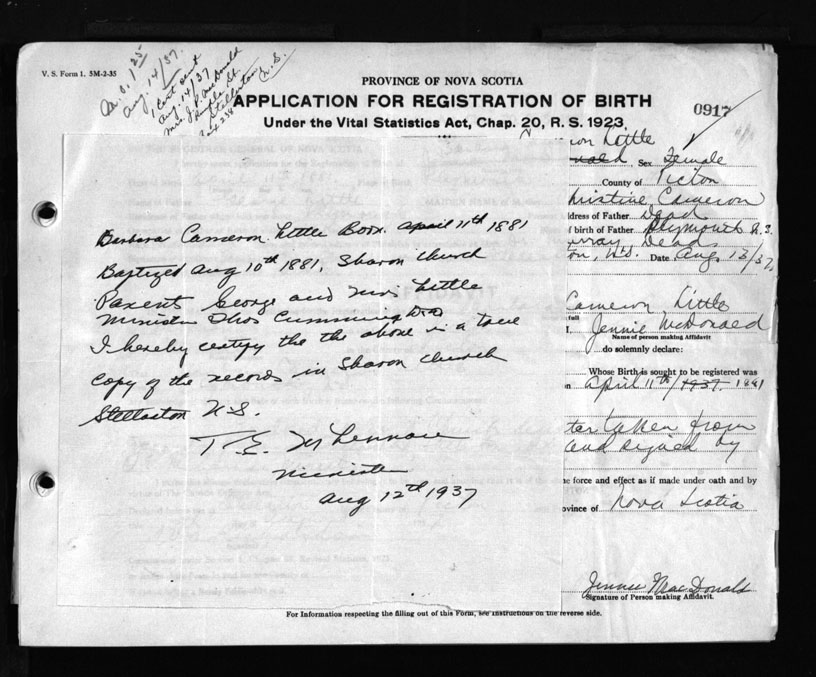 V. S. Form 1. 5M-2-35
M.O. 1 25
Aug. 14/37.
1 Cert sent
Aug. 14/37
Mrs. J. P. McDonald
St.
Stellarton N.S.
Box 238
PROVINCE OF NOVA SCOTIA
APPLICATION FOR REGISTRATION OF BIRTH
Under the Vital Statistics Act, Chap. 20, R. S. 1923
0917
Barbara Cameron Little Born April 11th 1881
Baptized Aug 10th 1881. Sharon Church
Parents George and Mrs. Little
Minister Thos Cumming
I hereby certify the the above is a true
copy of the records in Sharon Church
Stellarton N.S.
Minister
Aug 12th 1937
on Little
Sex Female
County of Pictou
hristine Cameron
ddress of Father Dead
f birth of Father Plymouth N.S.
rray Dead
on, N.S. Date Aug. 13/37.
Cameron Little
full
I. Jennie McDonald
Name of person making Affidavit
do solemnly declare:
Whose Birth is sought to be registered was
n April 11th/1937. 1881
ter taken from
and signed by
he force and effect as if made under oath and by
ovince of Nova Scotia
Jennie MacDonald
Signature of Person making Affidavit.
For Information respecting the filling out of this Form, see instructions on the reverse side.